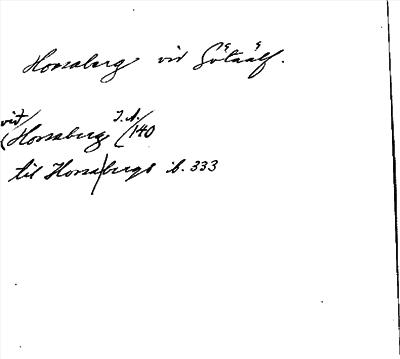 Horsaberg vid Götaälf.
við/ J. A./
(Horsaberg /140
til Horsabergs ib. 333